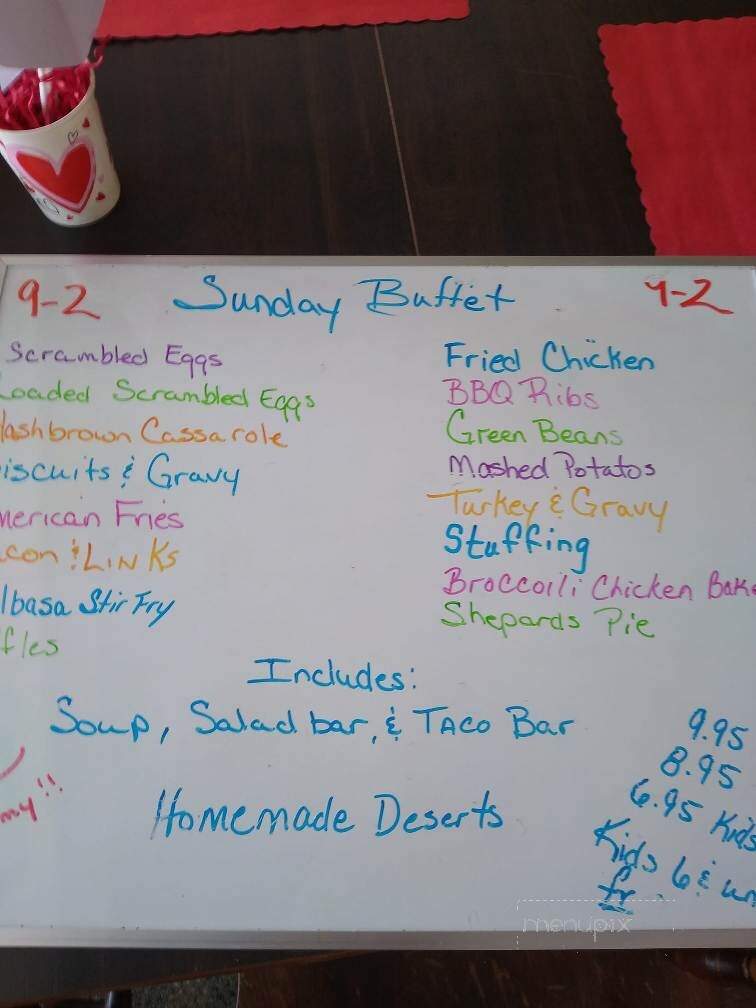 9-2 Sunday Buffet 9-2
Scrambled Eggs
Loaded Scrambled Eggs
Hashbrown Cassarole
iscuits & Gravy
merican Fries
con & Links
lbasa Stir Fry
fles
Fried Chicken
BBQ Ribs
Green Beans
Mashed Potatos
Turkey & Gravy
Stuffing
Broccoili Chicken Bake
Shepards Pie
Includes:
Soup, Salad bar, & Taco Bar
Homemade Deserts
my!!
9.95
8.95
6.95 Kids
Kids 6 & un
fr
menupix